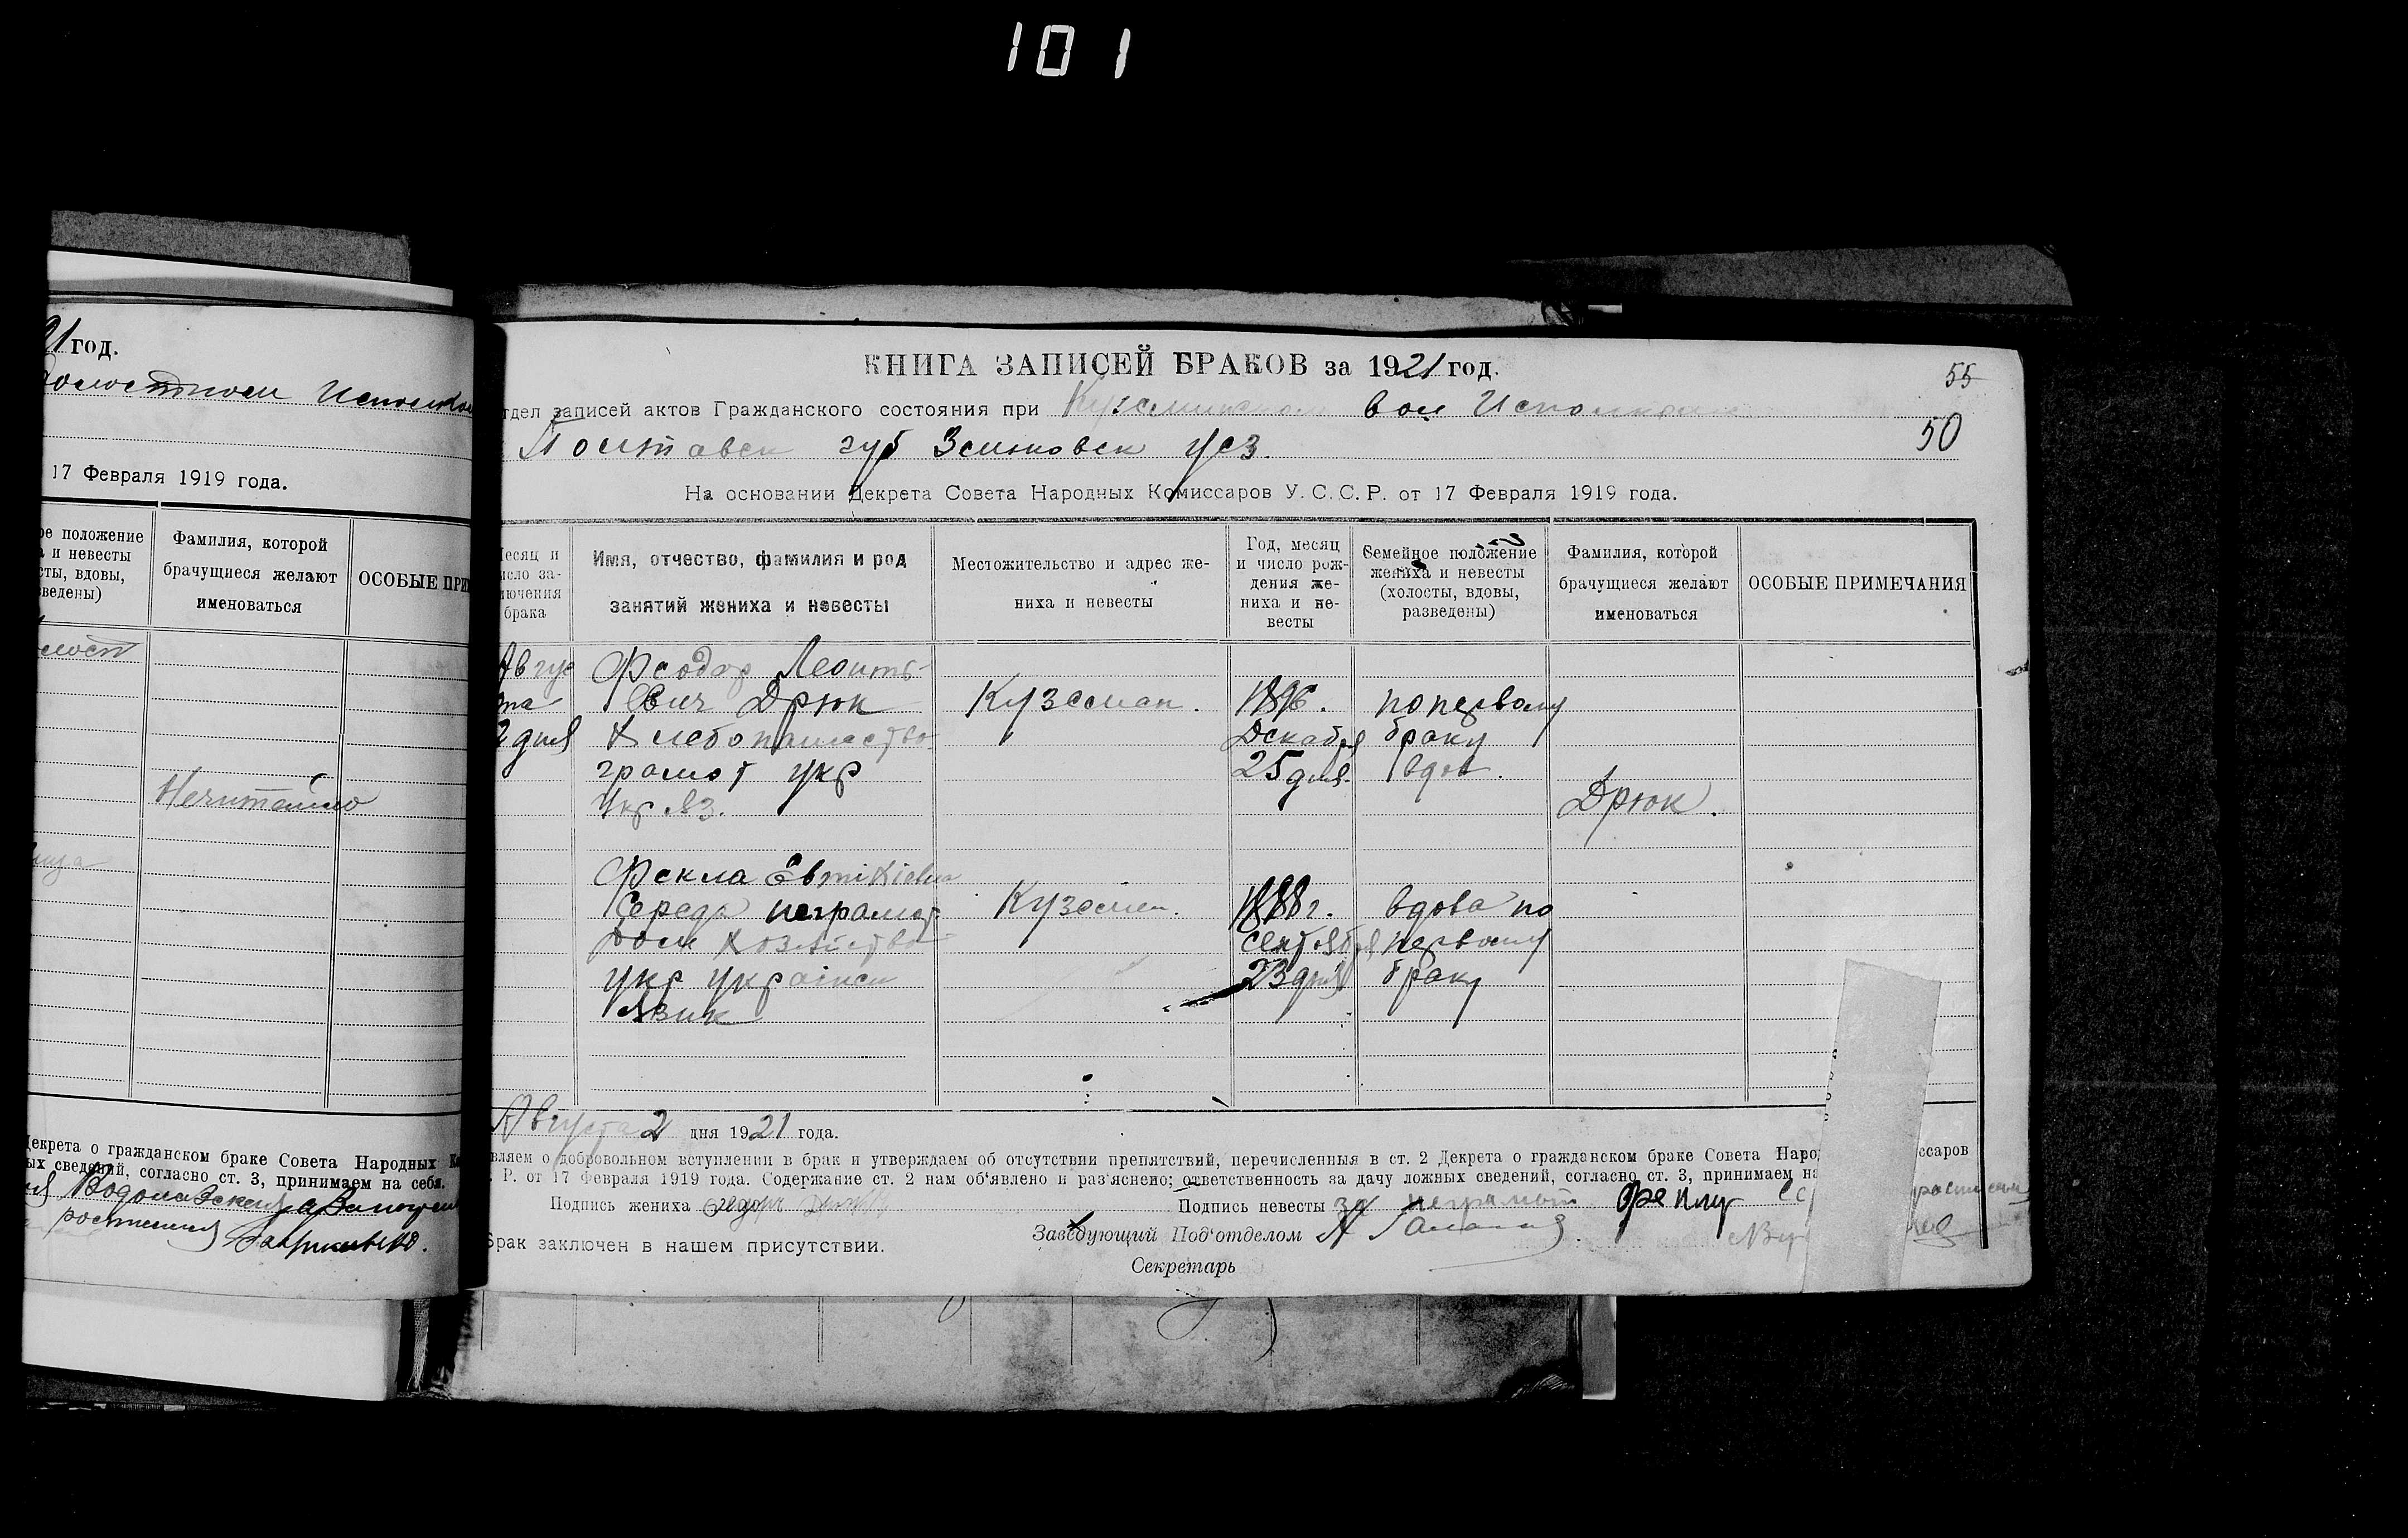 101
21 год.
17 Февраля 1919 года.
ре положение
а и невесты
сты, вдовы,
зведены)
Фамилия, которой
брачущиеся желают
именоваться
ОСОБЫЕ ПРИМ
декрета о гражданском браке Совета Народных
ых сведений, согласно ст. 3, принимаем на себя.
КНИГА ЗАПИСЕЙ БРАКОВ за 1921 год.
55
тдел записей актов Гражданского состояния при вол Исполкоме
50
Полтавск губ Зеньковск уез.
На основании Декрета Совета Народных Комиссаров У. С. С. Р. от 17 Февраля 1919 года.
Месяц и
число за-
ключения
брака
Имя, отчество, фамилия и род
занятий жениха и невесты
Местожительство и адрес же-
ниха и невесты
Год, месяц
и число рож-
дения же-
ниха и не-
весты
Семейное положение
жениха и невесты
(холосты, вдовы,
разведены)
Фамилия, которой
брачущиеся желают
именоваться
ОСОБЫЕ ПРИМЕЧАНИЯ
Авгус
та
2 дня
Феодор Леонть-
евич Дрюк
Хлебопашество
грамот укр
Укр яз.
Куземен.
1896.
Декабря
25 дня.
по первому
браку
вдов.
Дрюк.
Фекла Евтікіевна
Середа неграмот
дом хозяйство
укр украінси
язик
Куземен.
1888 г.
сентября
23 дня
вдова по
первому
браку
Августа 2 дня 1921 года.
вляем о добровольном вступлении в брак и утверждаем об отсутствии препятствий, перечисленныя в ст. 2 Декрета о гражданском браке Совета Наро ссаров
Р. от 17 Февраля 1919 года. Содержание ст. 2 нам об'явлено и раз'яснено; ответственность за дачу ложных сведений, согласно ст. 3, принимаем на
Подпись жениха Федор
Подпись невесты за Феклу
Брак заключен в нашем присутствии.
Заведующий Под'отделом
Секретарь